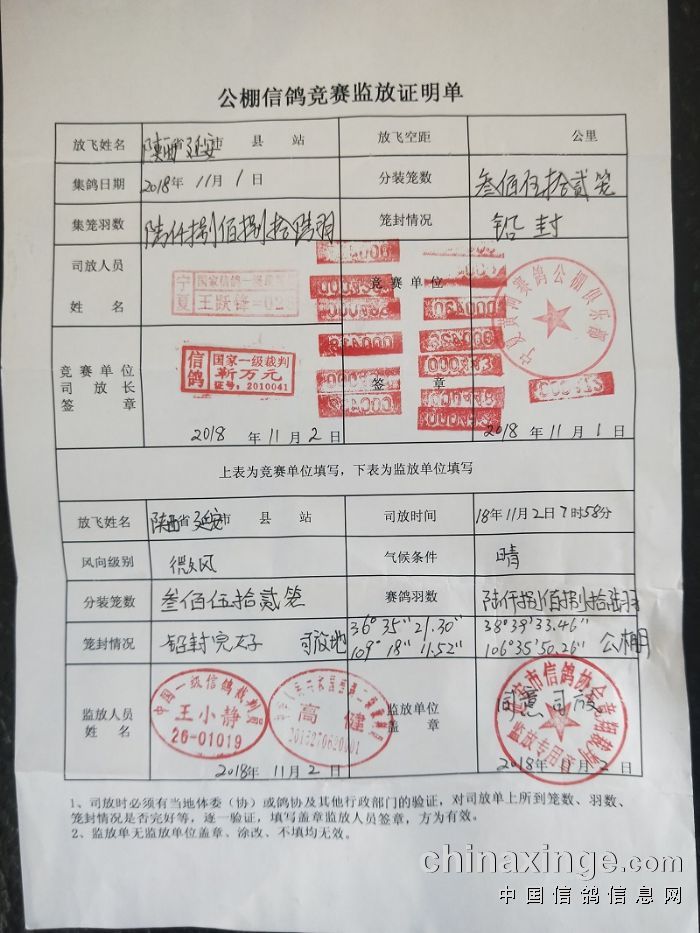 公棚信鸽竞赛监放证明单
放飞姓名 陕西省延安市 县 站 放飞空距 公里
集鸽日期 2018年11月1日 分装笼数 叁佰伍拾贰笼
集笼羽数 陆仟捌佰捌拾陆羽 笼封情况 铅封
司放人员
姓 名
宁夏 国家信鸽一级裁判
王跃锋
竞赛单位
宁夏黄河赛鸽公棚俱乐部
竞赛单位
司放长
签 章
信鸽 国家一级裁判
靳万元
证号:2010041
签 章
2018年11月2日 2018年11月1日
上表为竞赛单位填写，下表为监放单位填写
放飞姓名 陕西省延安市 县 站 司放时间 18年11月2日7时58分
风向级别 微风 气候条件 晴
分装笼数 叁佰伍拾贰笼 赛鸽羽数 陆仟捌佰捌拾陆羽
笼封情况 铅封完好 司放地 36°35"21.30" 109°18"11.52" 38°39'33.46" 106°35'50.26" 公棚
监放人员
姓 名
中国一级信鸽裁判员
王小静
26-01019
高健
监放单位
盖 章
同意司放
延安市信鸽协会竞翔裁判
监放专用章
2018年11月2日 2018年11月2日
1、司放时必须有当地体委（协）或鸽协及其他行政部门的验证，对司放单上所到笼数、羽数、
笼封情况是否完好等，逐一验证，填写盖章监放人员签章，方为有效。
2、监放单无监放单位盖章、涂改、不填均无效。
chinaxinge.com
中国信鸽信息网